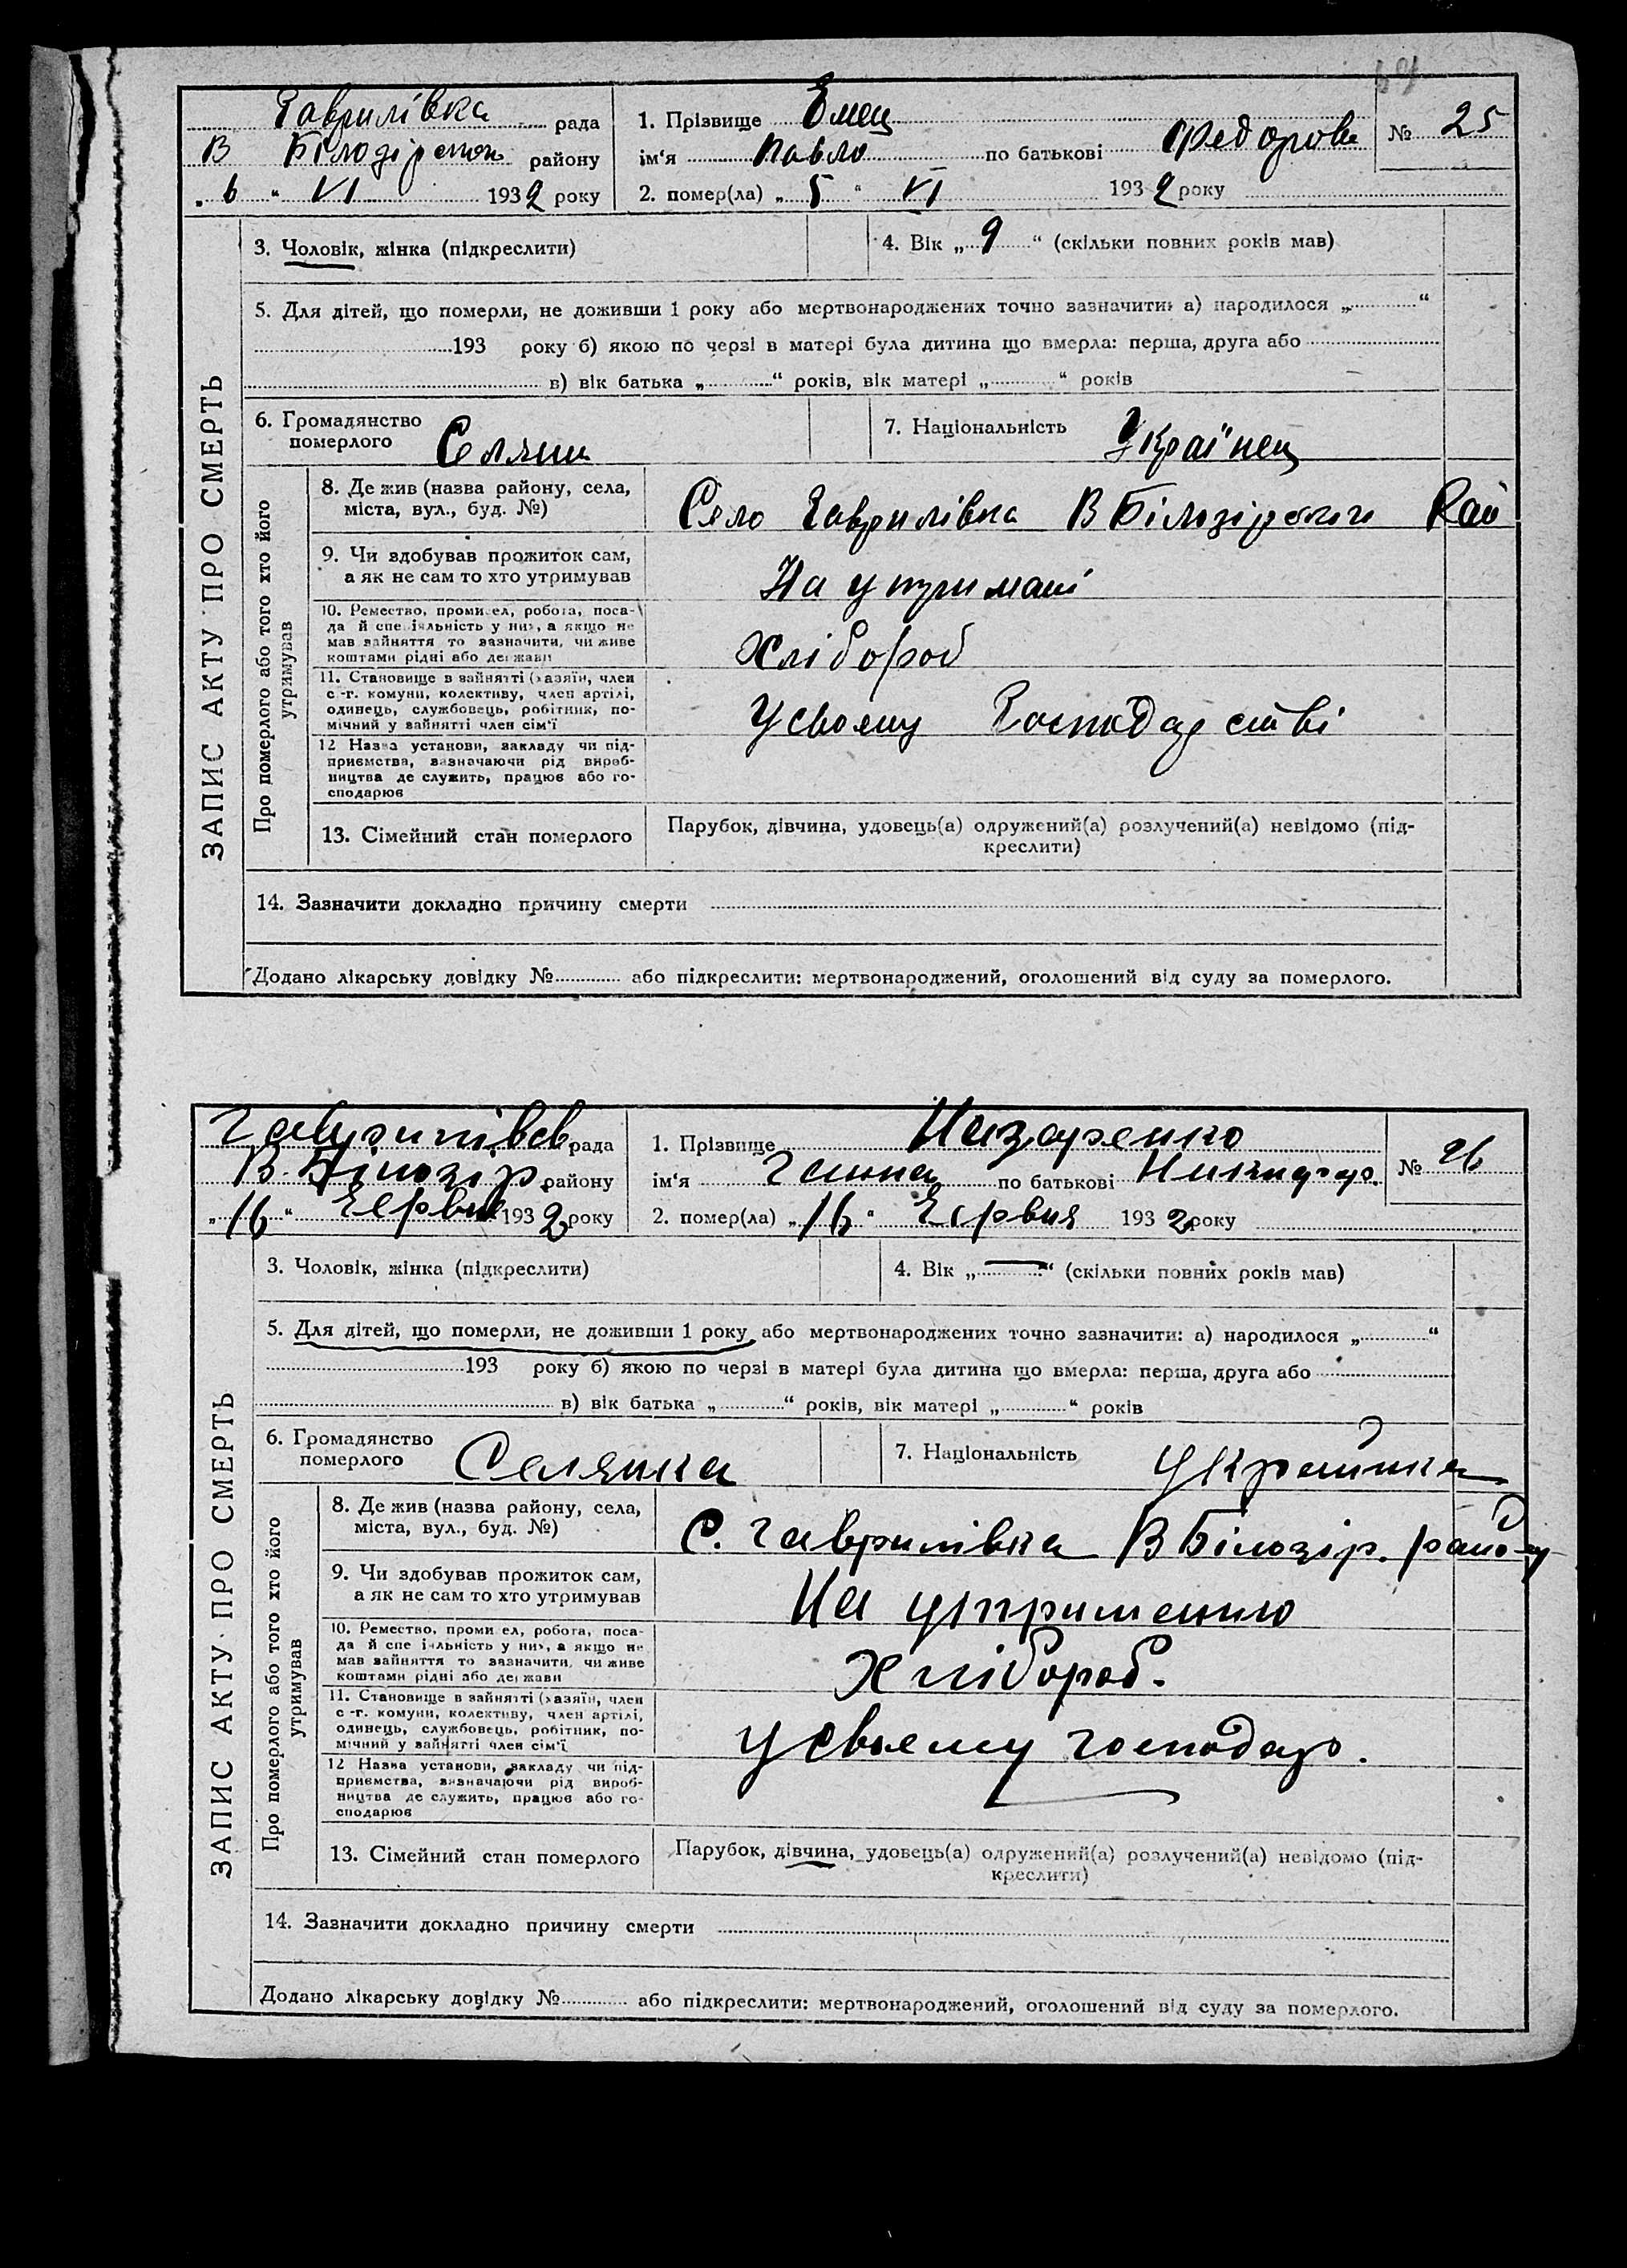 Гаврилівка рада
В Білозірськ району
„6“ VI 1932 року
1. Прізвище Емец
ім‘я Павло по батькові Федорове
№ 25
2. помер(ла) „5“ VI 1932 року
3. Чоловік, жінка (підкреслити)
4. Вік „9“ (скільки повних років мав)
5. Для дітей, що померли, не доживши 1 року або мертвонароджених точно зазначити: а) народилося „ “
193 року б) якою по черзі в матері була дитина що вмерла: перша, друга або
в) вік батька „ “ років, вік матері „ “ років
6. Громадянство померлого Селянин
7. Національність Українец
ЗАПИС АКТУ ПРО СМЕРТЬ
Про померлого або того хто його утримував
8. Де жив (назва району, села,
міста, вул., буд. №)
Село Гаврилівка В Білозірськи Рай
9. Чи здобував прожиток сам,
а як не сам то хто утримував
На утримані
10. Ремество, промисел, робота, поса-
да й спеціяльність у них, а якщо не
мав зайняття то зазначити, чи живе
коштами рідні або держави
Хлібороб
11. Становище в зайнятті (хазяїн, член
с.-г. комуни, колективу, член артілі,
одинець, службовець, робітник, по-
мічний у зайнятті член сім‘ї
У своему Господарстві
12 Назва установи, закладу чи під-
приємства, зазначаючи рід вироб-
ництва де служить, працює або го-
сподарює
13. Сімейний стан померлого
Парубок, дівчина, удовець(а) одружений(а) розлучений(а) невідомо (під-
креслити)
14. Зазначити докладно причину смерти
Додано лікарську довідку № або підкреслити: мертвонароджений, оголошений від суду за померлого.
Гаврилівсь рада
В. Білозір. району
„16“ Червня 1932 року
1. Прізвище Назаренко
ім‘я Ганна по батькові Никифор.
№ 26
2. помер(ла) „16“ Червня 1932 року
3. Чоловік, жінка (підкреслити)
4. Вік „—“ (скільки повних років мав)
5. Для дітей, що померли, не доживши 1 року або мертвонароджених точно зазначити: а) народилося „ “
193 року б) якою по черзі в матері була дитина що вмерла: перша, друга або
в) вік батька „ “ років, вік матері „ “ років
6. Громадянство померлого Селянка
7. Національність Украйинка
ЗАПИС АКТУ ПРО СМЕРТЬ
Про померлого або того хто його утримував
8. Де жив (назва району, села,
міста, вул., буд. №)
С. Гаврилівка В Білозір. району
9. Чи здобував прожиток сам,
а як не сам то хто утримував
На утриманню
10. Ремество, промисел, робота, поса-
да й спеціяльність у них, а якщо не
мав зайняття то зазначити, чи живе
коштами рідні або держави
Хлібороб.
11. Становище в зайнятті (хазяїн, член
с.-г. комуни, колективу, член артілі,
одинець, службовець, робітник, по-
мічний у зайнятті член сім‘ї
У своему господар.
12 Назва установи, закладу чи під-
приємства, зазначаючи рід вироб-
ництва де служить, працює або го-
сподарює
13. Сімейний стан померлого
Парубок, дівчина, удовець(а) одружений(а) розлучений(а) невідомо (під-
креслити)
14. Зазначити докладно причину смерти
Додано лікарську довідку № або підкреслити: мертвонароджений, оголошений від суду за померлого.